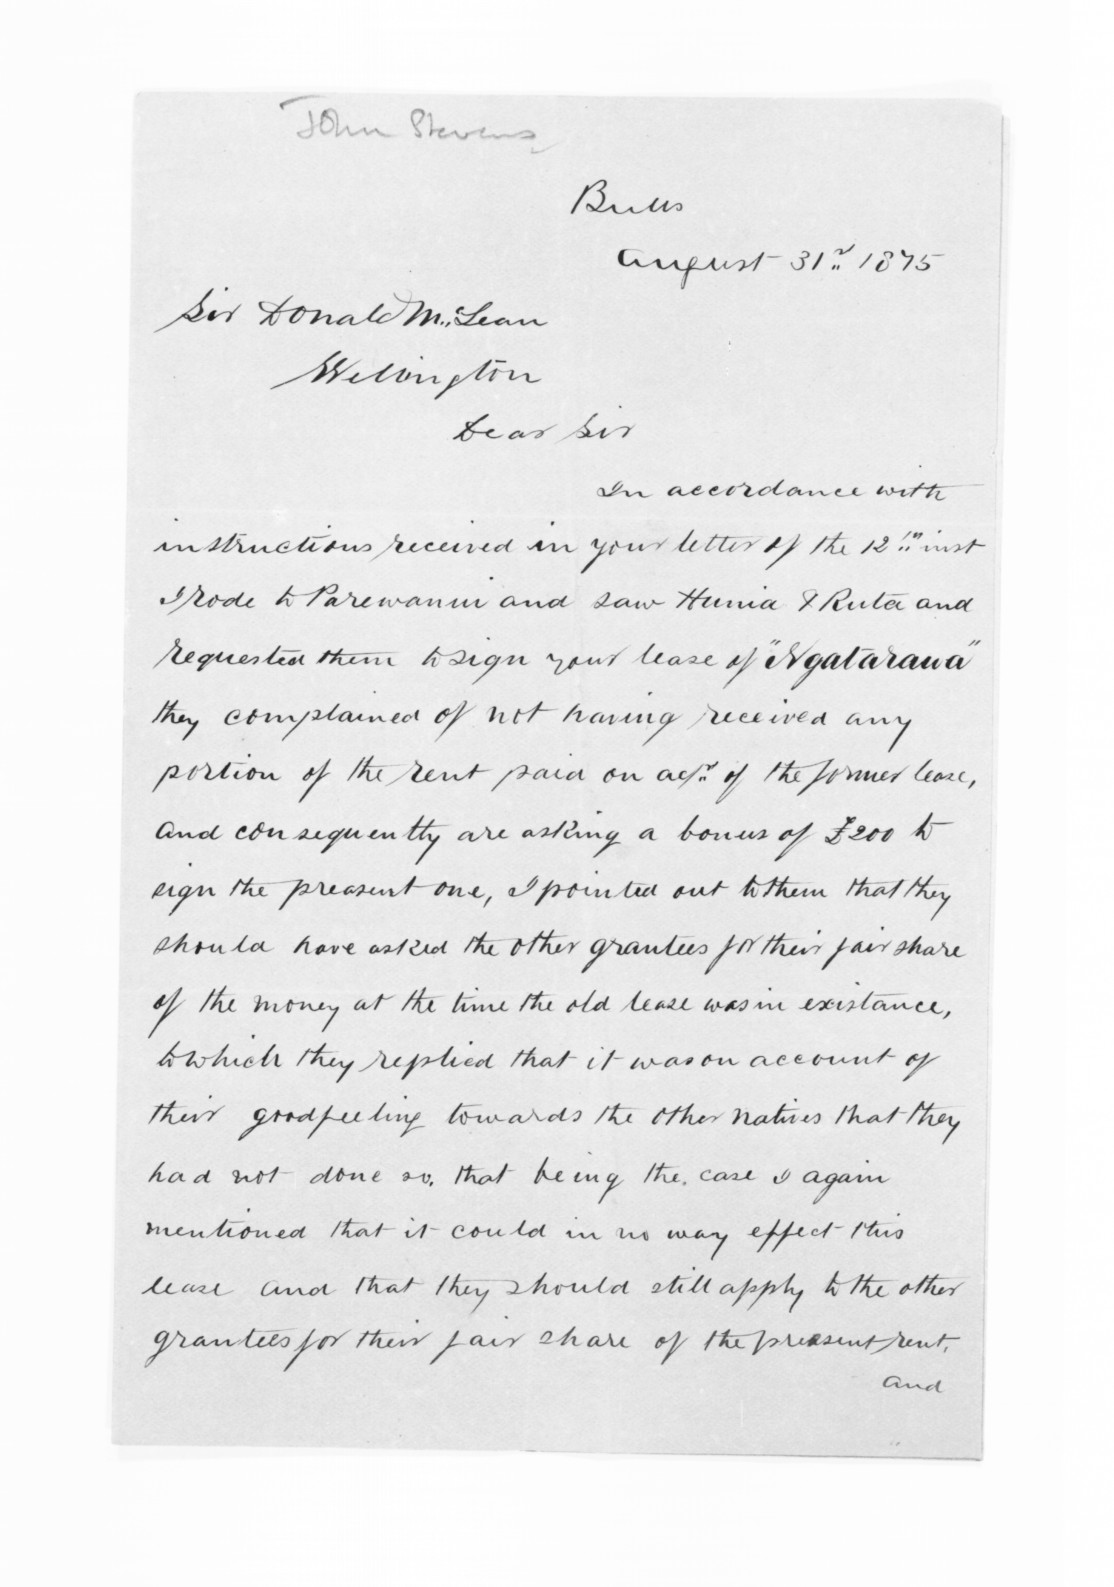 John Stevens
Bulls
August 31st 1875
Sir Donald McLean
Wellington
Dear Sir
In accordance with
instructions received in your letter of the 12th inst
I rode to Parewanui and saw Hunia & Ruta and
requested them to sign your lease of "Ngatarawa"
they complained of not having received any
portion of the rent paid on acct of the former lease,
and consequently are asking a bonus of £200 to
sign the preasent one, I pointed out to them that they
should have asked the other grantees for their fair share
of the money at the time the old lease was in existance,
to which they replied that it was on account of
their goodfeeling towards the other natives that they
had not done so. that being the case I again
mentioned that it could in no way effect this
lease and that they should still apply to the other
grantees for their fair share of the preasent rent.
and